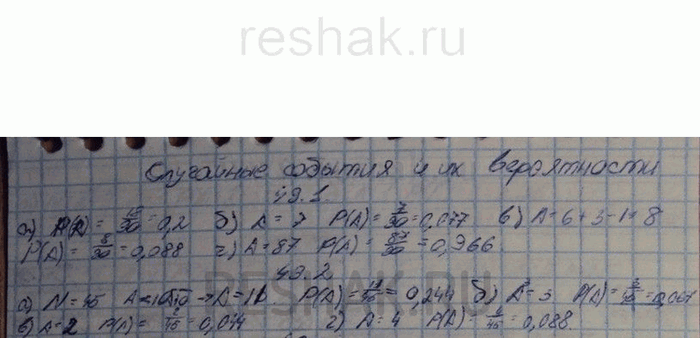 reshak.ru
Случайные события и их вероятности
49.1.
а) P(A) = 18/90 = 0,2 б) A = 7 P(A) = 7/90 = 0,077 в) A = 6 + 3 - 1 = 8
P(A) = 8/90 = 0,088 г) A = 87 P(A) = 87/90 = 0,966
RESHAK.RU
49.2
а) N = 45 A = 11 P(A) = 11/45 = 0,244 б) A = 3 P(A) = 3/45 = 0,067
в) A = 2 P(A) = 2/45 = 0,044 г) A = 4 P(A) = 45 = 0,088